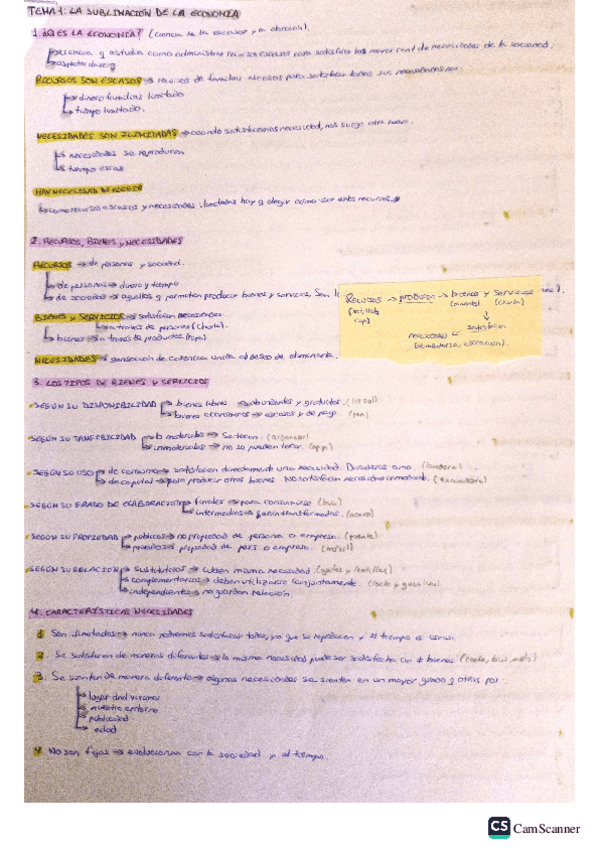 TEMA 1: LA SUBLIMACIÓN DE LA ECONOMÍA
1. ¿QÉ ES LA ECONOMÍA? (Ciencia de la escasez y la elección).
ciencia q estudia como administrar recursos escasos para satisfacer la mayor cant de necesidades de la sociedad.
RECURSOS SON ESCASOS → recursos de familias escasos para satisfacer todas sus necesidades
→ dinero familias limitado
→ tiempo limitado.
NECESIDADES SON ILIMITADAS → cuando satisfacemos necesidad, nos surge otra nueva.
→ necesidades se reproducen
→ tiempo escaso
HAY NECESIDAD DE ELEGIR
→ como recursos escasos y necesidades ilimitadas hay q elegir como usar estos recursos.
2. RECURSOS, BIENES y NECESIDADES
RECURSOS → de personas y sociedad.
→ de personas → dinero y tiempo
→ de sociedad → aquellos q permiten producir bienes y servicios. Son
BIENES y SERVICIOS → satisfacen necesidades.
→ a través de personas (charla).
→ bienes → a través de productos. (ropa)
NECESIDADES → sensación de carencia unida al deseo de eliminarla.
RECURSOS → producen → bienes y servicios
(charla)
↓
necesidades ← satisfacen
3. LOS TIPOS DE BIENES y SERVICIOS
SEGÚN SU DISPONIBILIDAD → bienes libres → abundantes y gratuitos.
→ bienes económicos → escasos y de pago. (pan)
SEGÚN SU TANGIBILIDAD → b. materiales → se tocan.
→ inmateriales → no se pueden tocar. (app)
SEGÚN SU USO → de consumo → satisfacen directamente una necesidad.
→ de capital → para producir otros bienes. No satisfacen necesidad inmediata.
SEGÚN SU GRADO DE ELABORACIÓN → finales → para consumirse
→ intermedios → para ser transformados. (acero)
SEGÚN SU PROPIEDAD → públicos → no propiedad de persona o empresa. (puente)
→ privados → propiedad de pers. o empresa. (móvil)
SEGÚN SU RELACIÓN → sustitutivos → cubren misma necesidad (gafas y lentillas)
→ complementarios → deben utilizarse conjuntamente. (coche y gasolina).
→ independientes → no guardan relación.
4. CARACTERÍSTICAS NECESIDADES
1 Son ilimitadas → nunca podremos satisfacer todas, ya que se reproducen y el tiempo es escaso.
2. Se satisfacen de maneras diferentes → la misma necesidad puede ser satisfecha con ≠ bienes (coche, bus, metro)
3. Se sienten de manera diferente → algunas necesidades se sienten en un mayor grado q otras por:
→ lugar dnd vivimos
→ nuestro entorno
→ publicidad
→ edad
4 No son fijas → evolucionan con la sociedad y el tiempo.
CS CamScanner